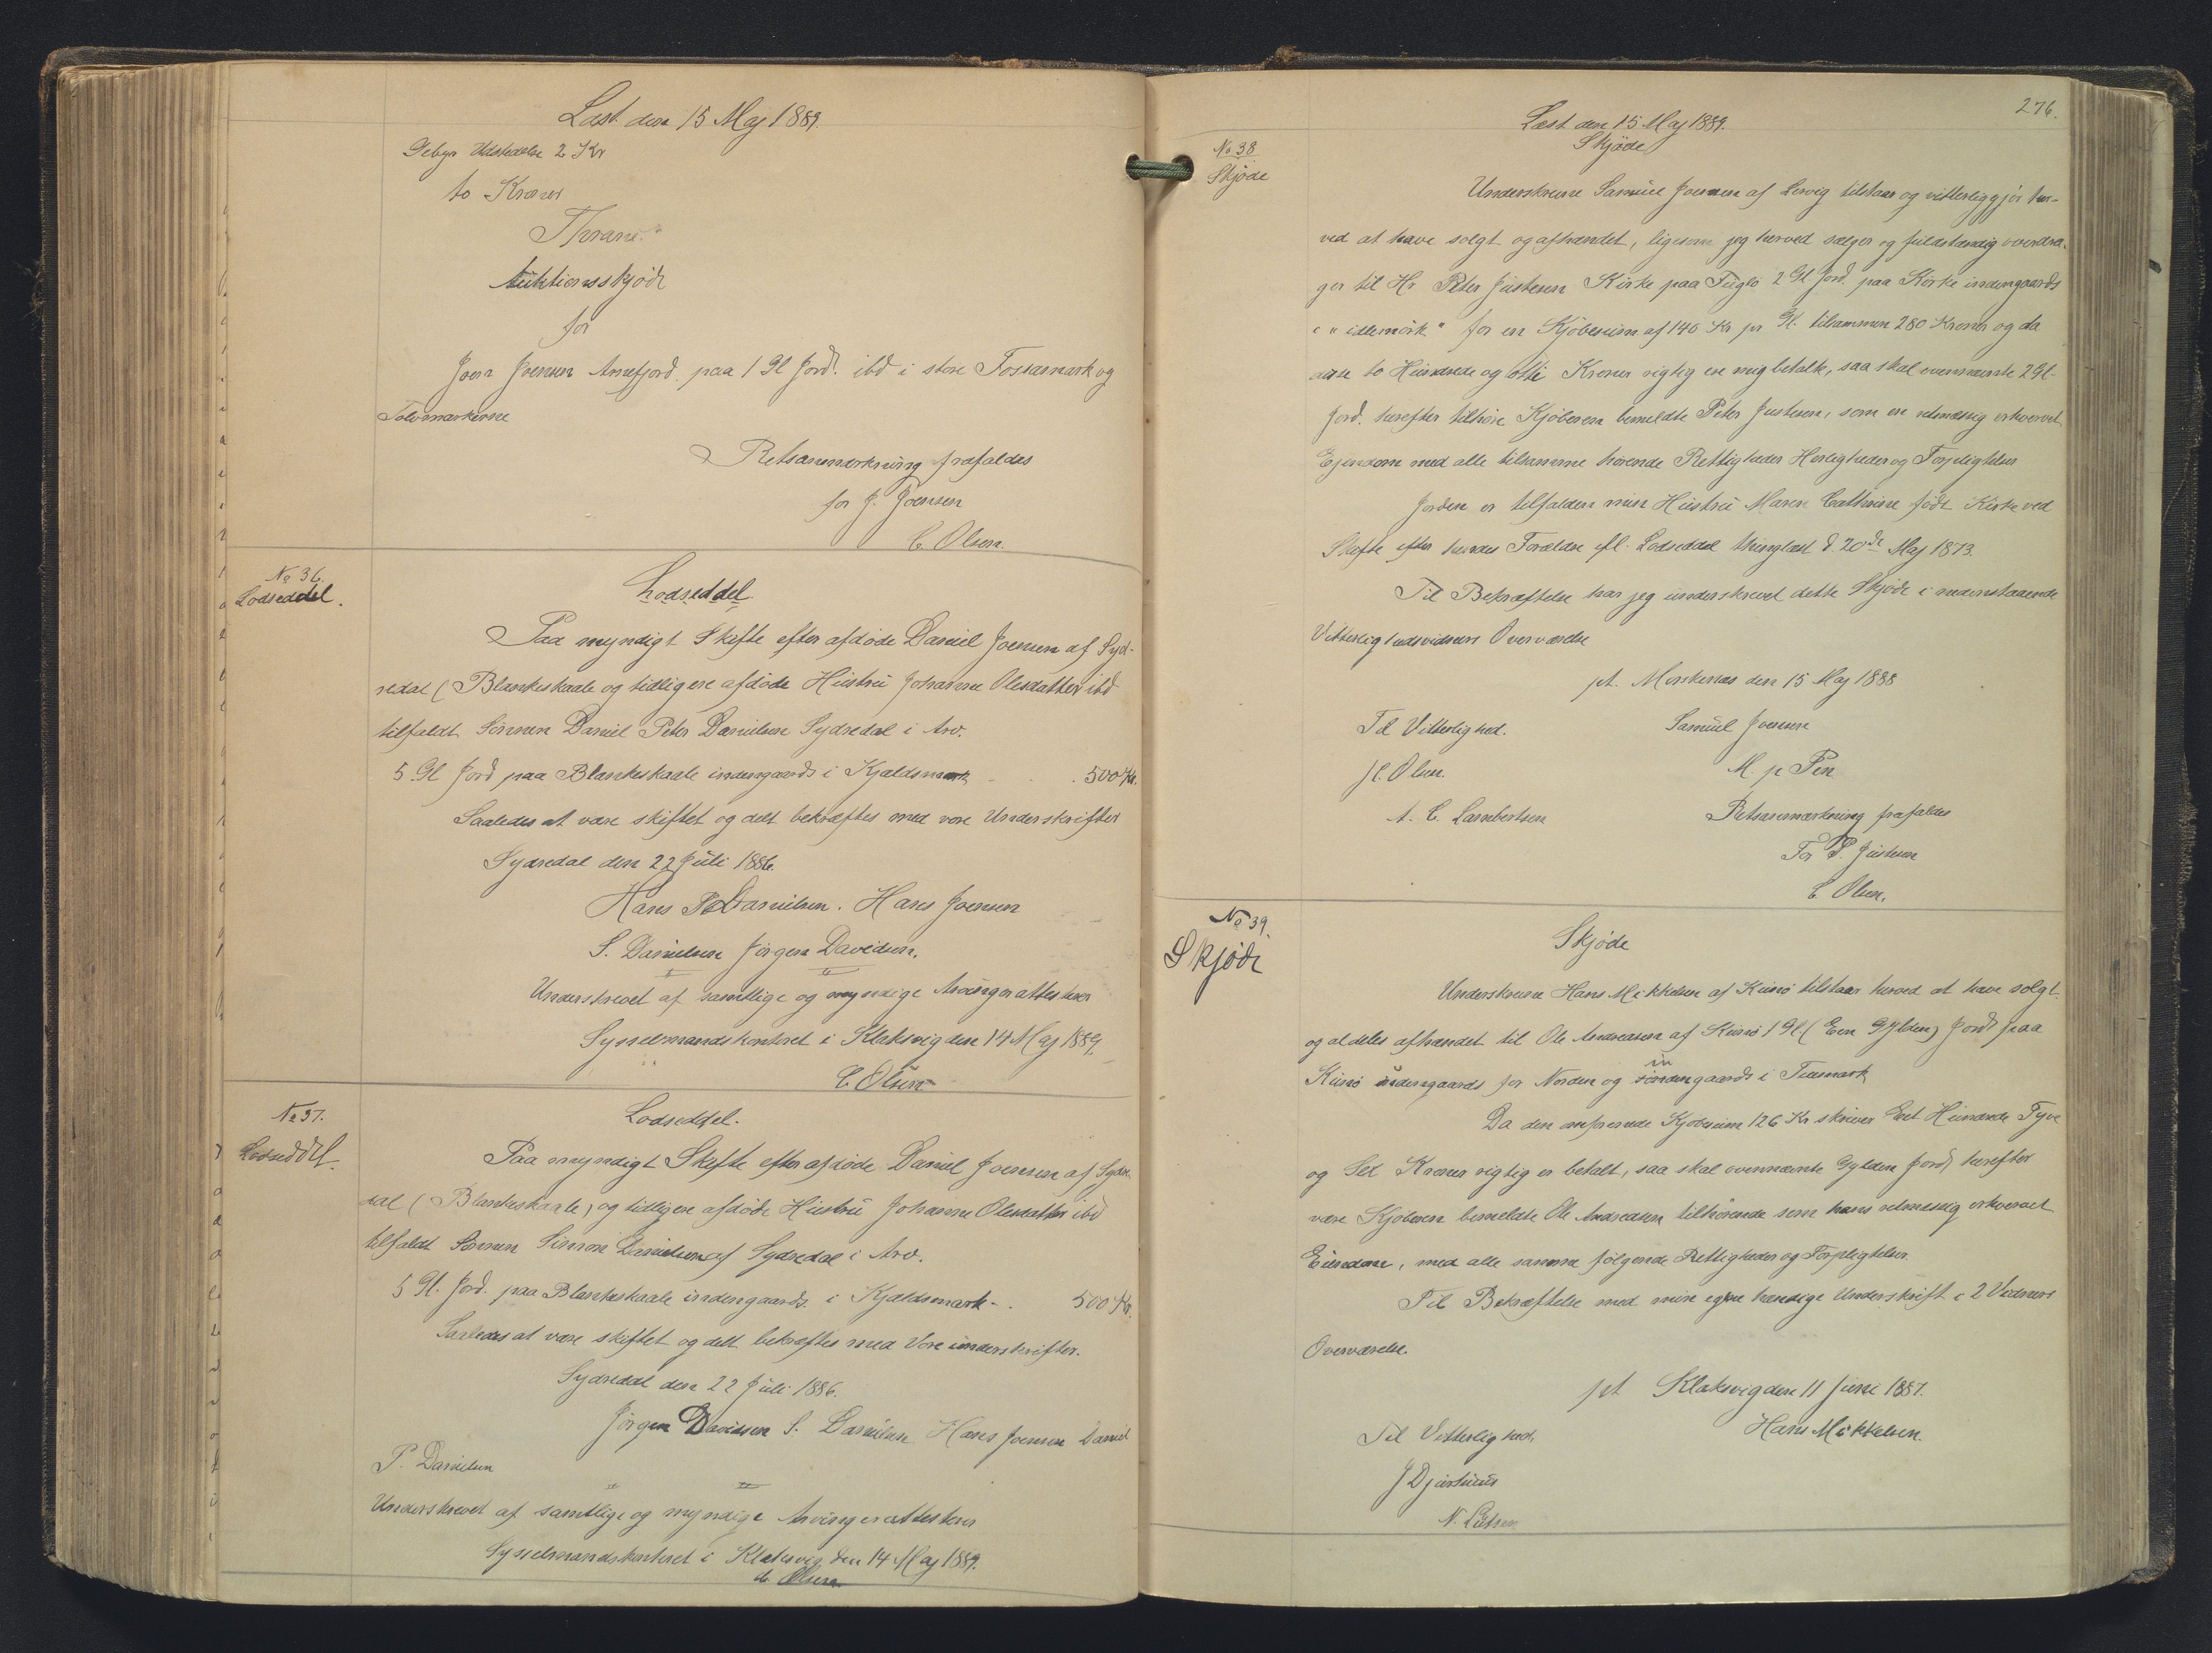 Læst den 15 Maj 1889.
Gebyr Udstedelse 2 Kr
to Kroner
Thrane
Auktionsskjøde
for
Joen Joensen Arnefjord paa 1 Gl Jord. ibd i store Fossamark og
Tolvmarkerne
Retsanmærkning frafaldes
for J. Joensen
C. Olsen.
No 36.
Lodseddel.
Lodseddel.
Paa myndigt Skifte efter afdøde Daniel Joensen af Syd-
redal (Blankeskaale og tidligere afdøde Hustru Johanne Olesdatter ibd
tilfaldt Sønnen Daniel Peter Danielsen Sydredal i Arv.
5 Gl Jord paa Blankeskaale indengaards i Kjaldsmark 500 Kr.
Saaledes at være skiftet og delt bekræftes med vore Underskrifter
Sydredal den 22 Juli 1886.
Hans Danielsen. Hans Joensen
S. Danielsen Jørgen Davidsen.
Underskrevet af samtlige og myndige Arvinger attesterer
Sysselmandskontoret i Klaksvig den 14 Maj 1889.
C. Olsen
No 37.
Lodseddel.
Lodseddel.
Paa myndigt Skifte efter afdøde Daniel Joensen af Sydre-
dal (Blankeskaale) og tidligere afdøde Hustru Johanne Olesdatter ibd
tilfaldt Sønnen Simon Danielsen af Sydredal i Arv.
5 Gl. Jord. paa Blankeskaale indengaards. i Kjaldsmark - . 500 Kr.
Saaledes at være skiftet og delt bekræftes med Vore underskrifter.
Sydredal den 22 Juli 1886.
Jørgen Davidsen S. Danielsen Hans Joensen Daniel
P. Danielsen
Underskrevet af samtlige og myndige Arvinger attesterer
Sysselmandskontoret i Klaksvig den 14 Maj 1889.
C. Olsen
276.
Læst den 15 Maj 1889.
No 38
Skjøde
Skjøde
Underskrevne Samuel Joensen af Lervig tilstaar og vitterliggjør her-
ved at have solgt og afhændet, ligesom jeg herved sælger og fuldstændig overdra-
ger til Hr Peter Justesen Kirke paa Fuglø 2 Gl Jord. paa Kirke indengaards
i "idlemörk" for en Kjøbesum af 140 Kr pr Gl. tilsammen 280 Kroner og da
disse to Hundrede og otti Kroner rigtig ere mig betalte, saa skal ovennævnte 2 Gl
Jord. herefter tilhøre Kjøberen bemeldte Peter Justesen, som en retmæssig erhvervet
Ejendom med alle tilsamme hørende Rettigheder Herligheder og Forpligtelser
Jorden er tilfalden min Hustru Maren Cathrine født Kirke ved
Skifte efter hendes Forældre efl. Lodseddel thinglæst d. 20de Maj 1873.
Til Bekræftelse har jeg underskrevet dette Skjøde i nedenstaaende
Vitterlighedsvidners Overværelse
pt. Morskenes den 15 Maj 1888
Til Vitterlighed. Samuel Joensen
J. C. Olsen. M. p Pen
A. C. Lambertsen Retsanmærkning frafaldes
For P. Justesen
C. Olsen.
No 39.
Skjøde
Skjøde
Underskrevne Hans Mikkelsen af Kunø tilstaar herved at have solgt
og aldeles afhændet til Ole Andreasen af Kunø 1 Gl (Een Gylden) Jord paa
Kunø indengaards for Norden og indengaards i Tuemark
Da den omforenede Kjøbesum 126 Kr skriver Eet Hundrede Tyve
og Sex Kroner rigtig er betalt, saa skal ovennævnte Gylden Jord, herefter
være Kjøberen bemeldte Ole Andreasen tilhørende som hans retmessig erhvervet
Eiendom, med alle samme følgende Rettigheder og Forpligtelser.
Til Bekræftelse med min egen hændige Underskrift i 2 Vidners
Overværelse.
pt Klaksvig den 11 Juni 1887.
Til Vitterlighed. Hans Mikkelsen.
J Djurhuus